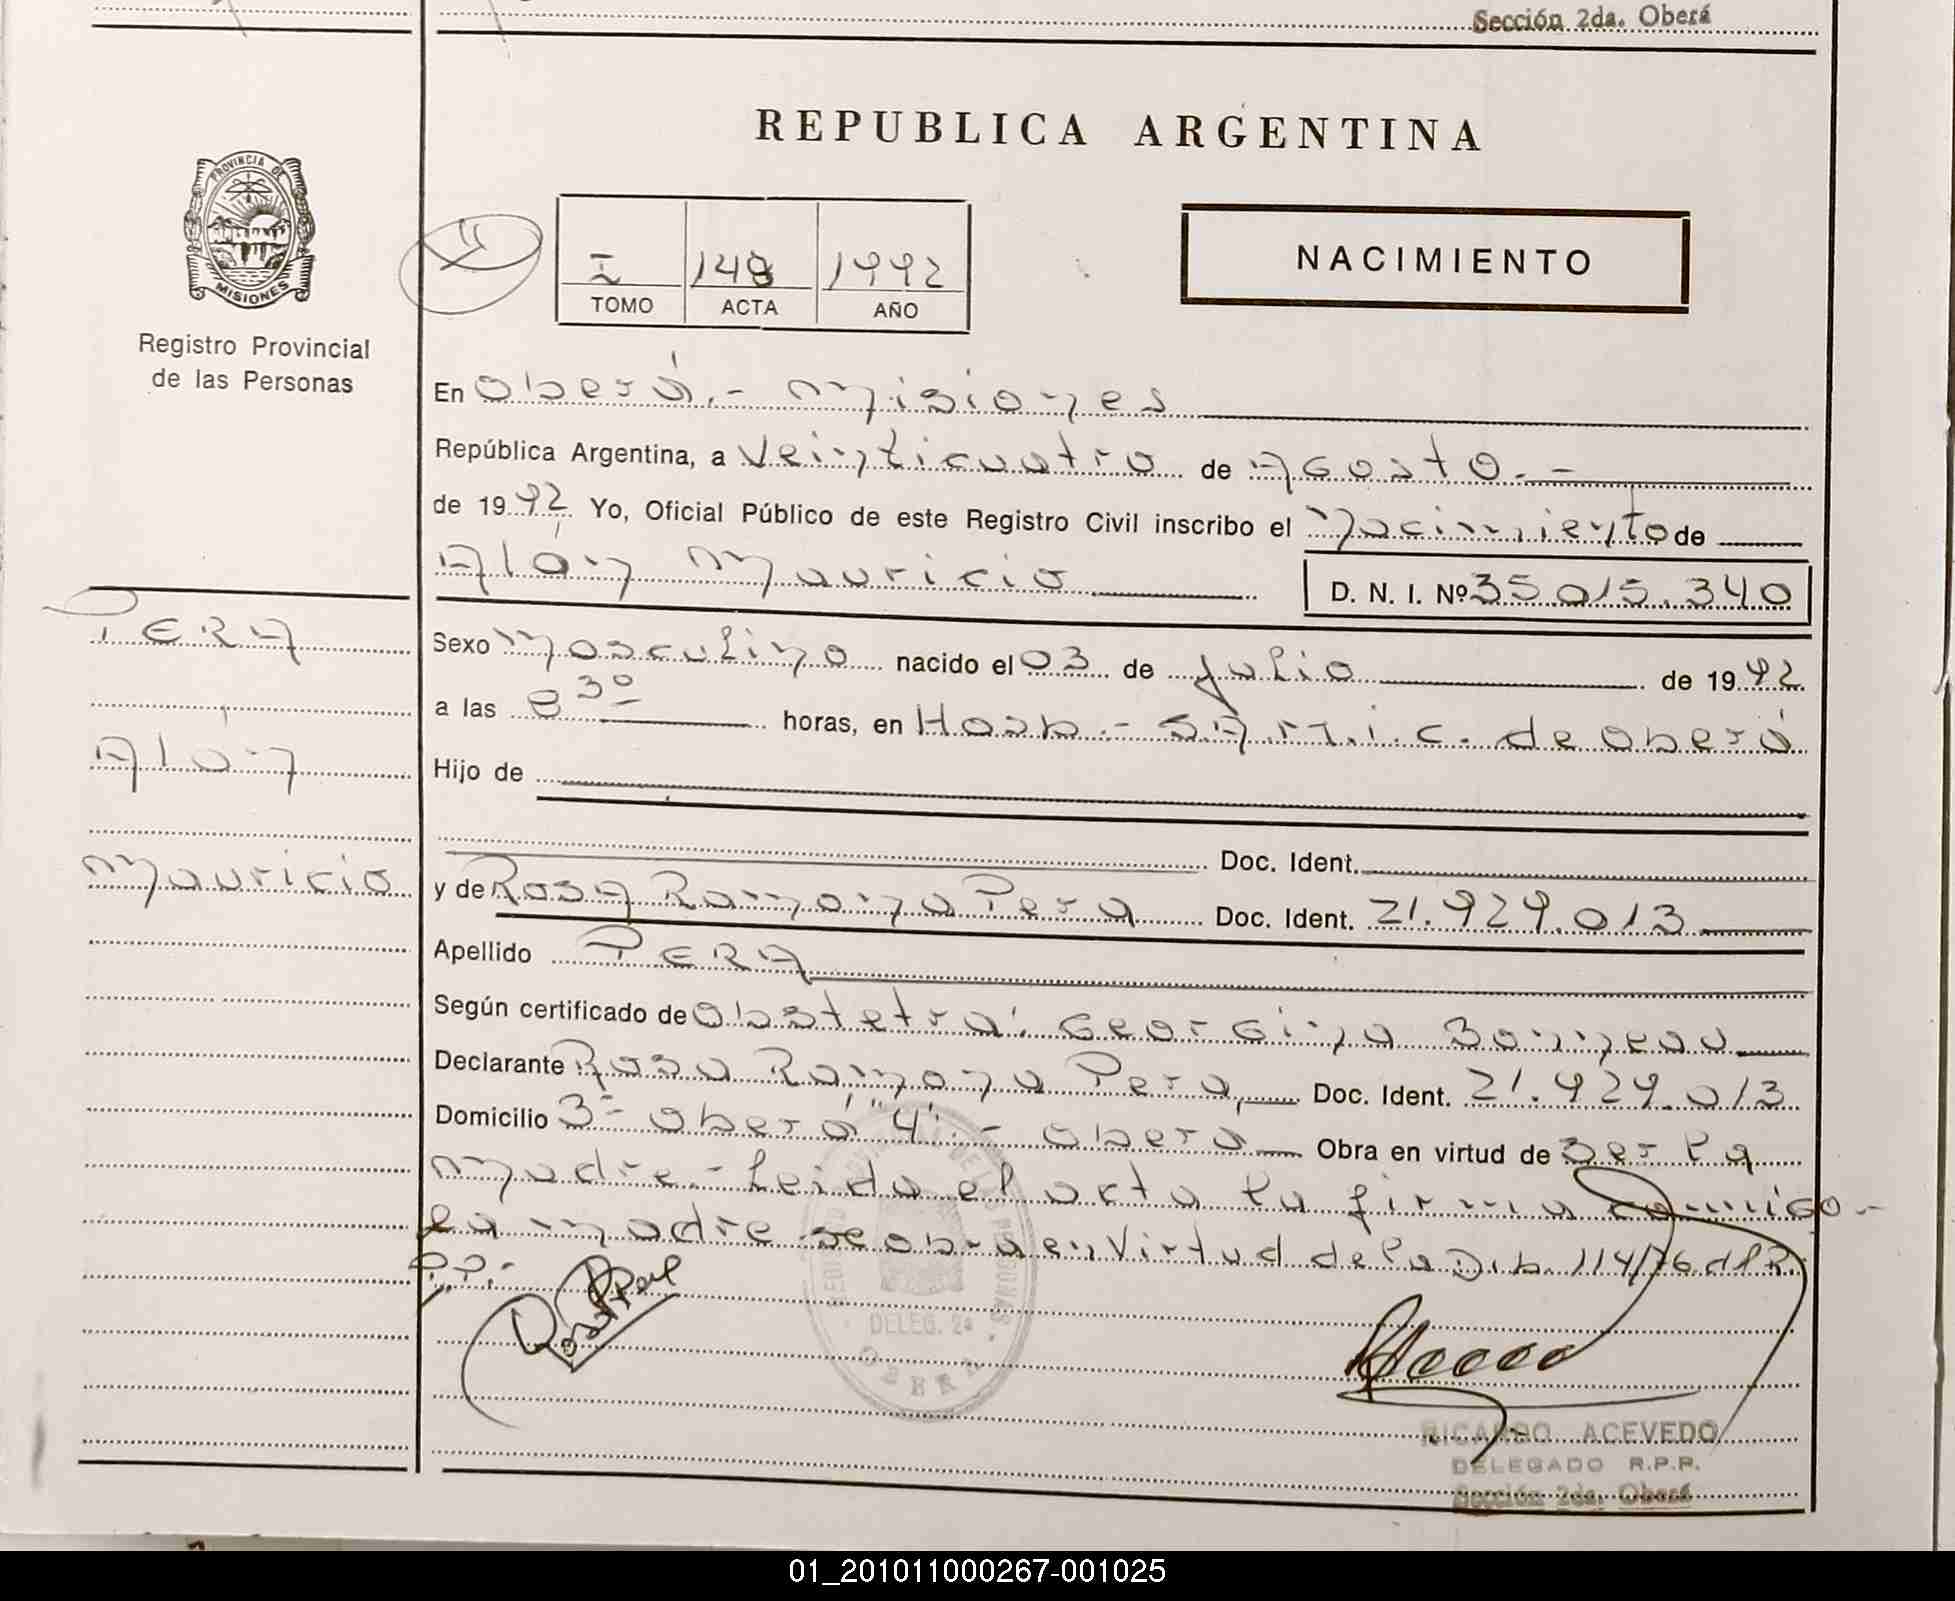 Sección 2da. Oberá
REPUBLICA ARGENTINA
PROVINCIA DE
MISIONES
Registro Provincial
de las Personas
I 148 1992
TOMO ACTA AÑO
NACIMIENTO
En Oberá.- Misiones
República Argentina, a Veinticuatro de Agosto.-
de 1992 Yo, Oficial Público de este Registro Civil inscribo el Nacimiento de
Alán Mauricio D. N. I. Nº 35.015.340
PERA
Alán
Mauricio
Sexo Masculino nacido el 03 de Julio de 1992
a las 8 30 horas, en Hosp.- S.A.M.I.C. de Oberá
Hijo de
Doc. Ident.
y de Rosa Ramona Pera Doc. Ident. 21.929.013
Apellido PERA
Según certificado de Obstetra: Georgina Bonneau
Declarante Rosa Ramona Pera, Doc. Ident. 21.929.013
Domicilio 3- Oberá "4".- Oberá Obra en virtud de Ser la
Madre.- Leida el acta la firma conmigo.-
la madre se obra en Virtud de la Disp. 114/76 del R.
P.P.-
REGISTRO PROVINCIAL DE LAS PERSONAS
DELEG. 2a
OBERA
RICARDO ACEVEDO
DELEGADO R.P.P.
Sección 2da. Oberá
01_201011000267-001025